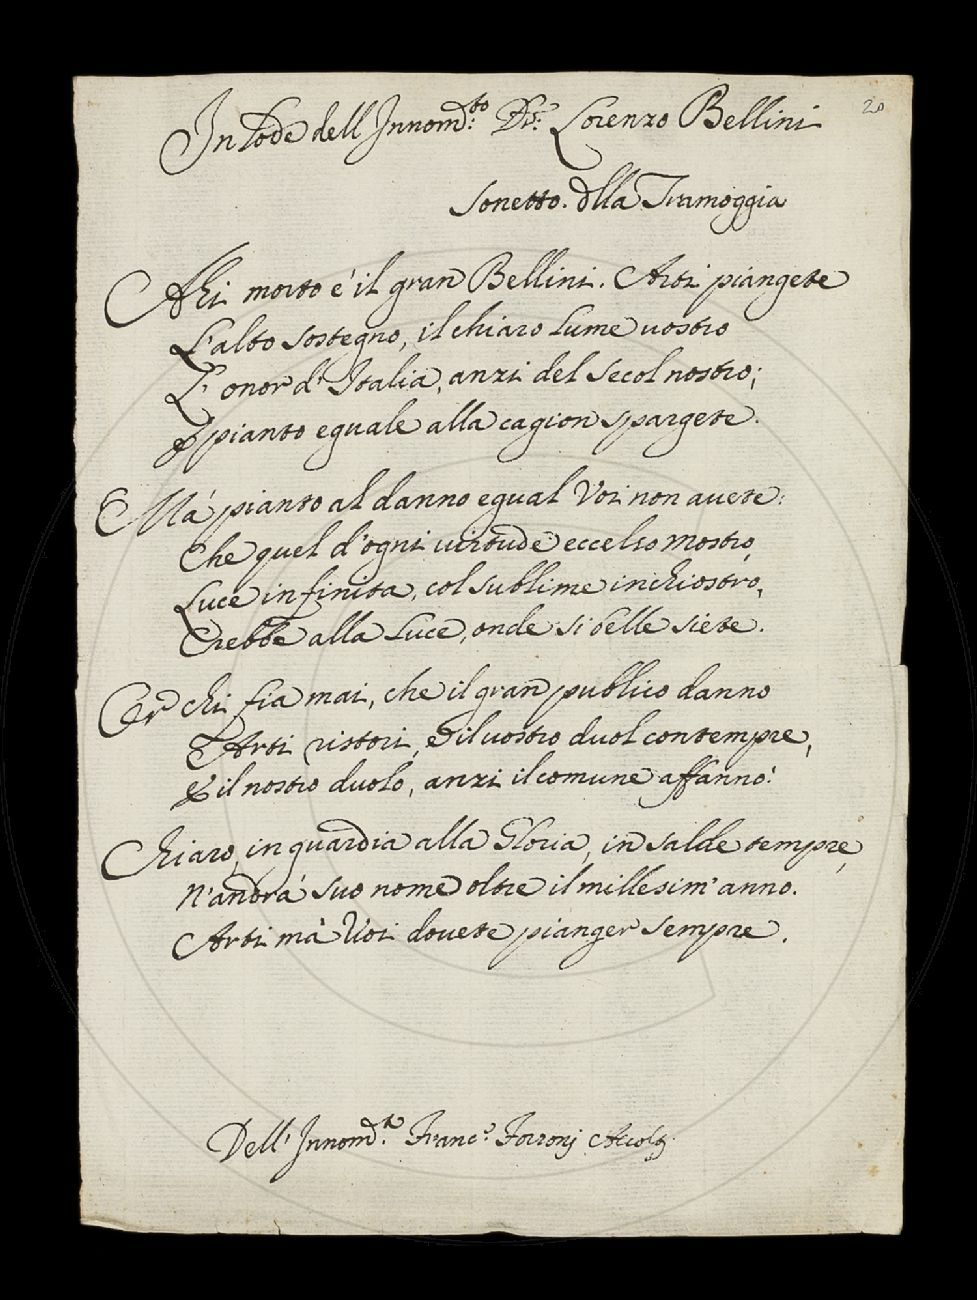 20
In Lode dell Innom.to Dr. Lorenzo Bellini
Sonetto. dlla Tramoggia
Ahi morto è il gran Bellini. Arti piangete
L'alto sostegno, il chiaro lume uostro
L'onor d'Italia, anzi del secol nostro;
E pianto eguale alla cagion spargete.
Mà pianto al danno egual Voi non auete:
Che quel d'ogni uirtude eccelso mostro,
Luce infinita, col sublime inchiostro,
Crebbe alla luce, onde si belle siete.
Or chi fia mai, che il gran publico danno
Arti ristori, e il uostro duol contempre,
E il nostro duolo, anzi il comune affanno?
Chiaro, in guardia alla Gloria, in salde tempre,
N'andrà suo nome oltre il millesim'anno.
Arti mà Voi douete pianger sempre.
Dell' Innom.o Franc.o Forzonj Accolti